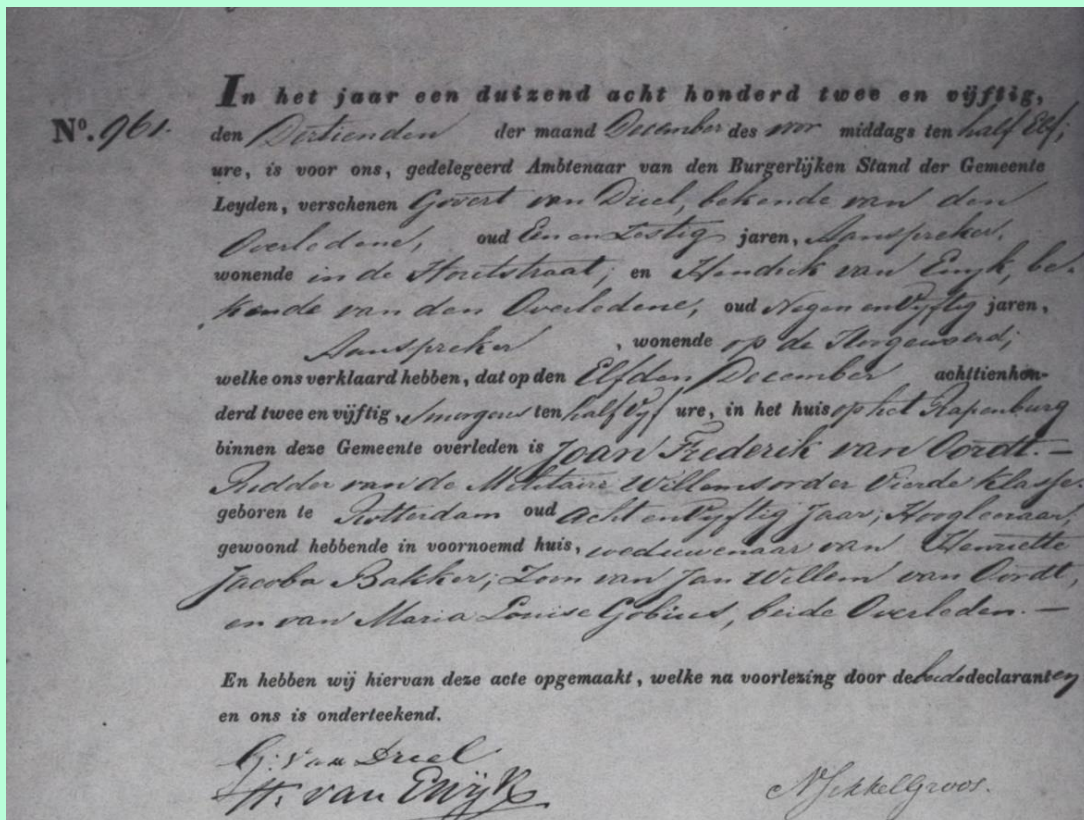 In het jaar een duizend acht honderd twee en vijftig,
N.º 961. den Dertienden der maand December des voor middags ten half Elf,
ure, is voor ons, gedelegeerd Ambtenaar van den Burgerlijken Stand der Gemeente
Leyden, verschenen Govert van Driel, bekende van den
Overledene, oud Een en Zestig jaren, Aanspreker,
wonende in de Houtstraat; en Hendrik van Ewyk, be-
kende van den Overledene, oud Negen en Vyftig jaren,
Aanspreker, wonende op de Hogewoerd;
welke ons verklaard hebben, dat op den Elfden December achttienhon-
derd twee en vijftig, smorgens ten half Vyf ure, in het huis op het Rapenburg
binnen deze Gemeente overleden is Joan Frederik van Oordt. —
Ridder van de Militaire Willemsorder Vierde Klasse.
geboren te Rotterdam oud Acht en Vyftig Jaar; Hoogleeraar,
gewoond hebbende in voornoemd huis, weduwenaar van Henriette
Jacoba Bakker; Zoon van Jan Willem van Oordt,
en van Maria Louise Gobius, beide Overleden. —
En hebben wij hiervan deze acte opgemaakt, welke na voorlezing door de beide declaranten
en ons is onderteekend.
G. van Driel
H. van Ewijk